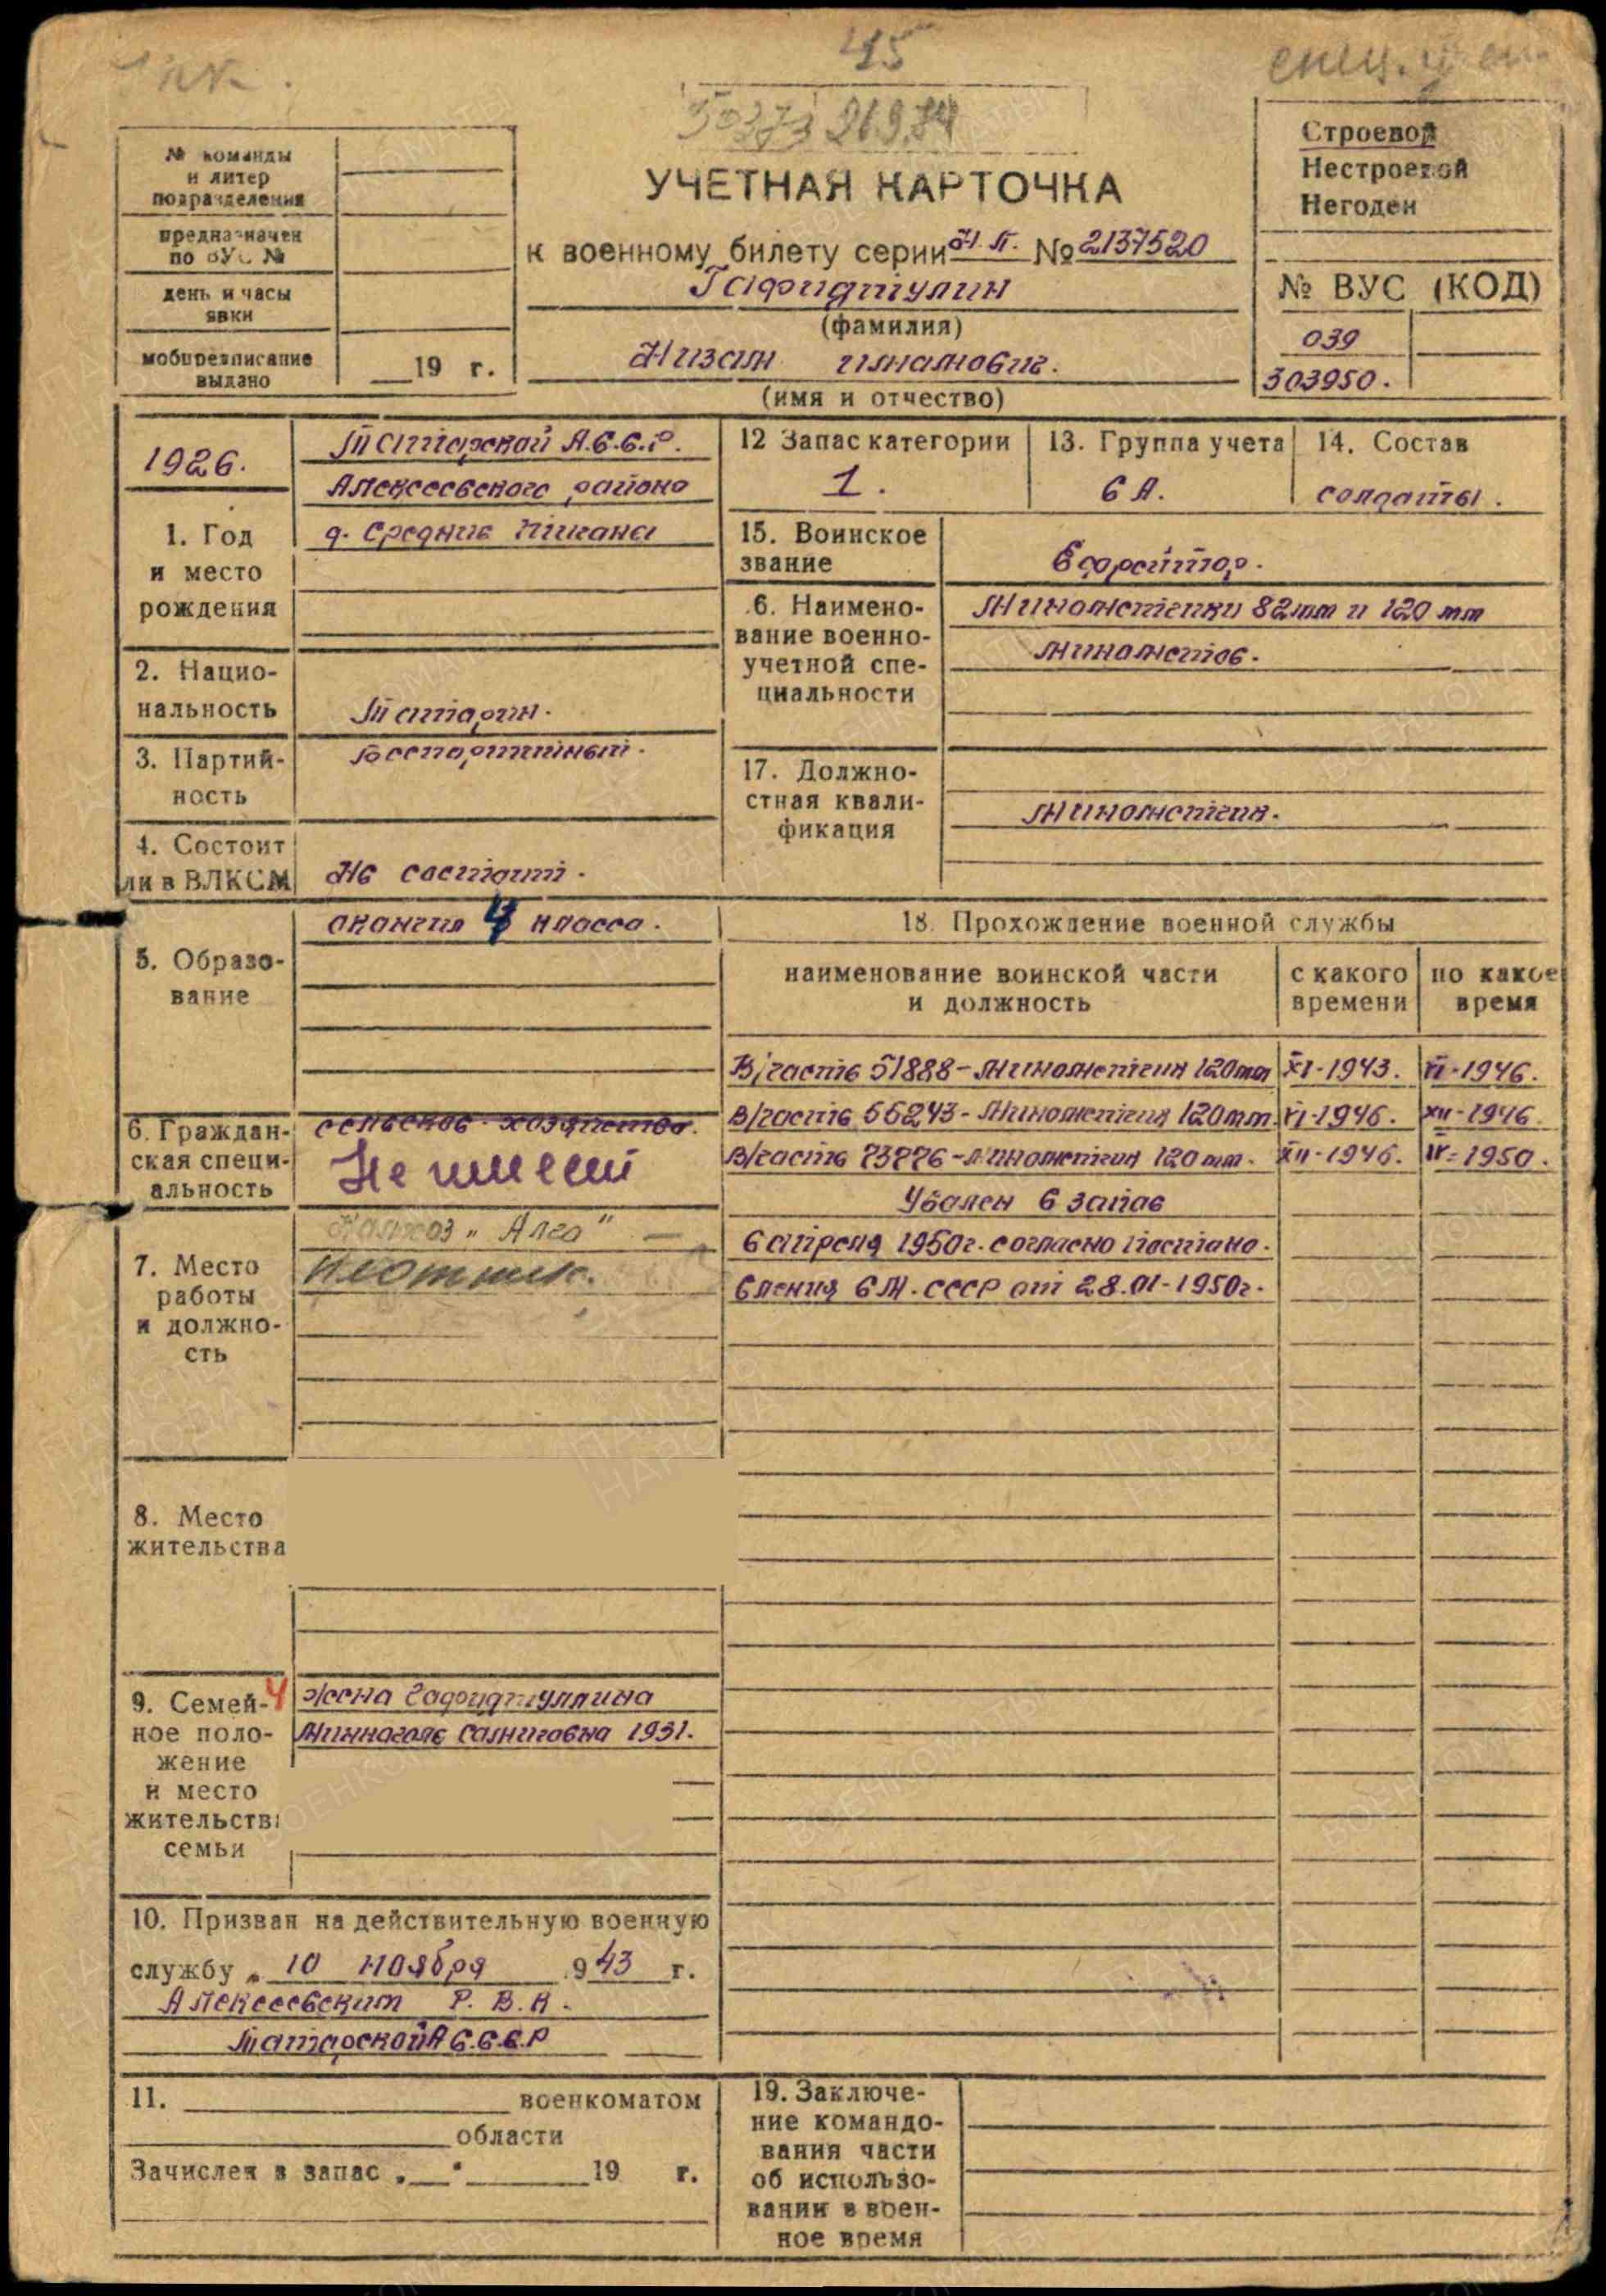 45
спец. уч.
50373 26974
№ команды
и литер
подразделения
предназначен
по ВУС №
день и часы
явки
мобпредписание
выдано
19 г.
УЧЕТНАЯ КАРТОЧКА
к военному билету серии Н.П. № 2137520
Гафиятулин
(фамилия)
Низам
(имя и отчество)
Строевой
Нестроевой
Негоден
№ ВУС (КОД)
039
303950.
1926.
1. Год
и место
рождения
Татарской А.С.С.Р.
Алексеевского района
д. Средние Тиганы
2. Нацио-
нальность
Татарин.
3. Партий-
ность
Беспартийный.
4. Состоит
ли в ВЛКСМ
Не состоит.
5. Образо-
вание
окончил 4 класса.
6. Граждан-
ская специ-
альность
сельское хозяйство.
Не имеет
7. Место
работы
и должно-
сть
Колхоз „Алга"
Плотник.
8. Место
жительства
9. Семей-
ное поло-
жение
и место
жительства
семьи
4
жена
1931.
10. Призван на действительную военную
службу „ 10 ноября 943 г.
Алексеевским Р.В.К.
Татарской А С.С.С.Р
11. военкоматом
области
Зачислен в запас „ " 19 г.
12 Запас категории
1.
13. Группа учета
С А.
14. Состав
солдаты.
15. Воинское
звание
Ефрейтор.
6. Наимено-
вание военно-
учетной спе-
циальности
Минометчики 82мм и 120 мм
минометов.
17. Должно-
стная квали-
фикация
Минометчик.
18. Прохождение военной службы
наименование воинской части
и должность
с какого
времени
по какое
время
В/часть 51888 - Минометчик 120мм XI-1943. VI-1946.
В/часть 55243 - Минометчик 120мм. VI-1946. XII-1946.
В/часть 73776 - Минометчик 120 мм. XII-1946. IV-1950.
Уволен в запас
в апреле 1950г. согласно постано-
вления С М. СССР от 28.01-1950г.
19. Заключе-
ние командо-
вания части
об использо-
вании в воен-
ное время